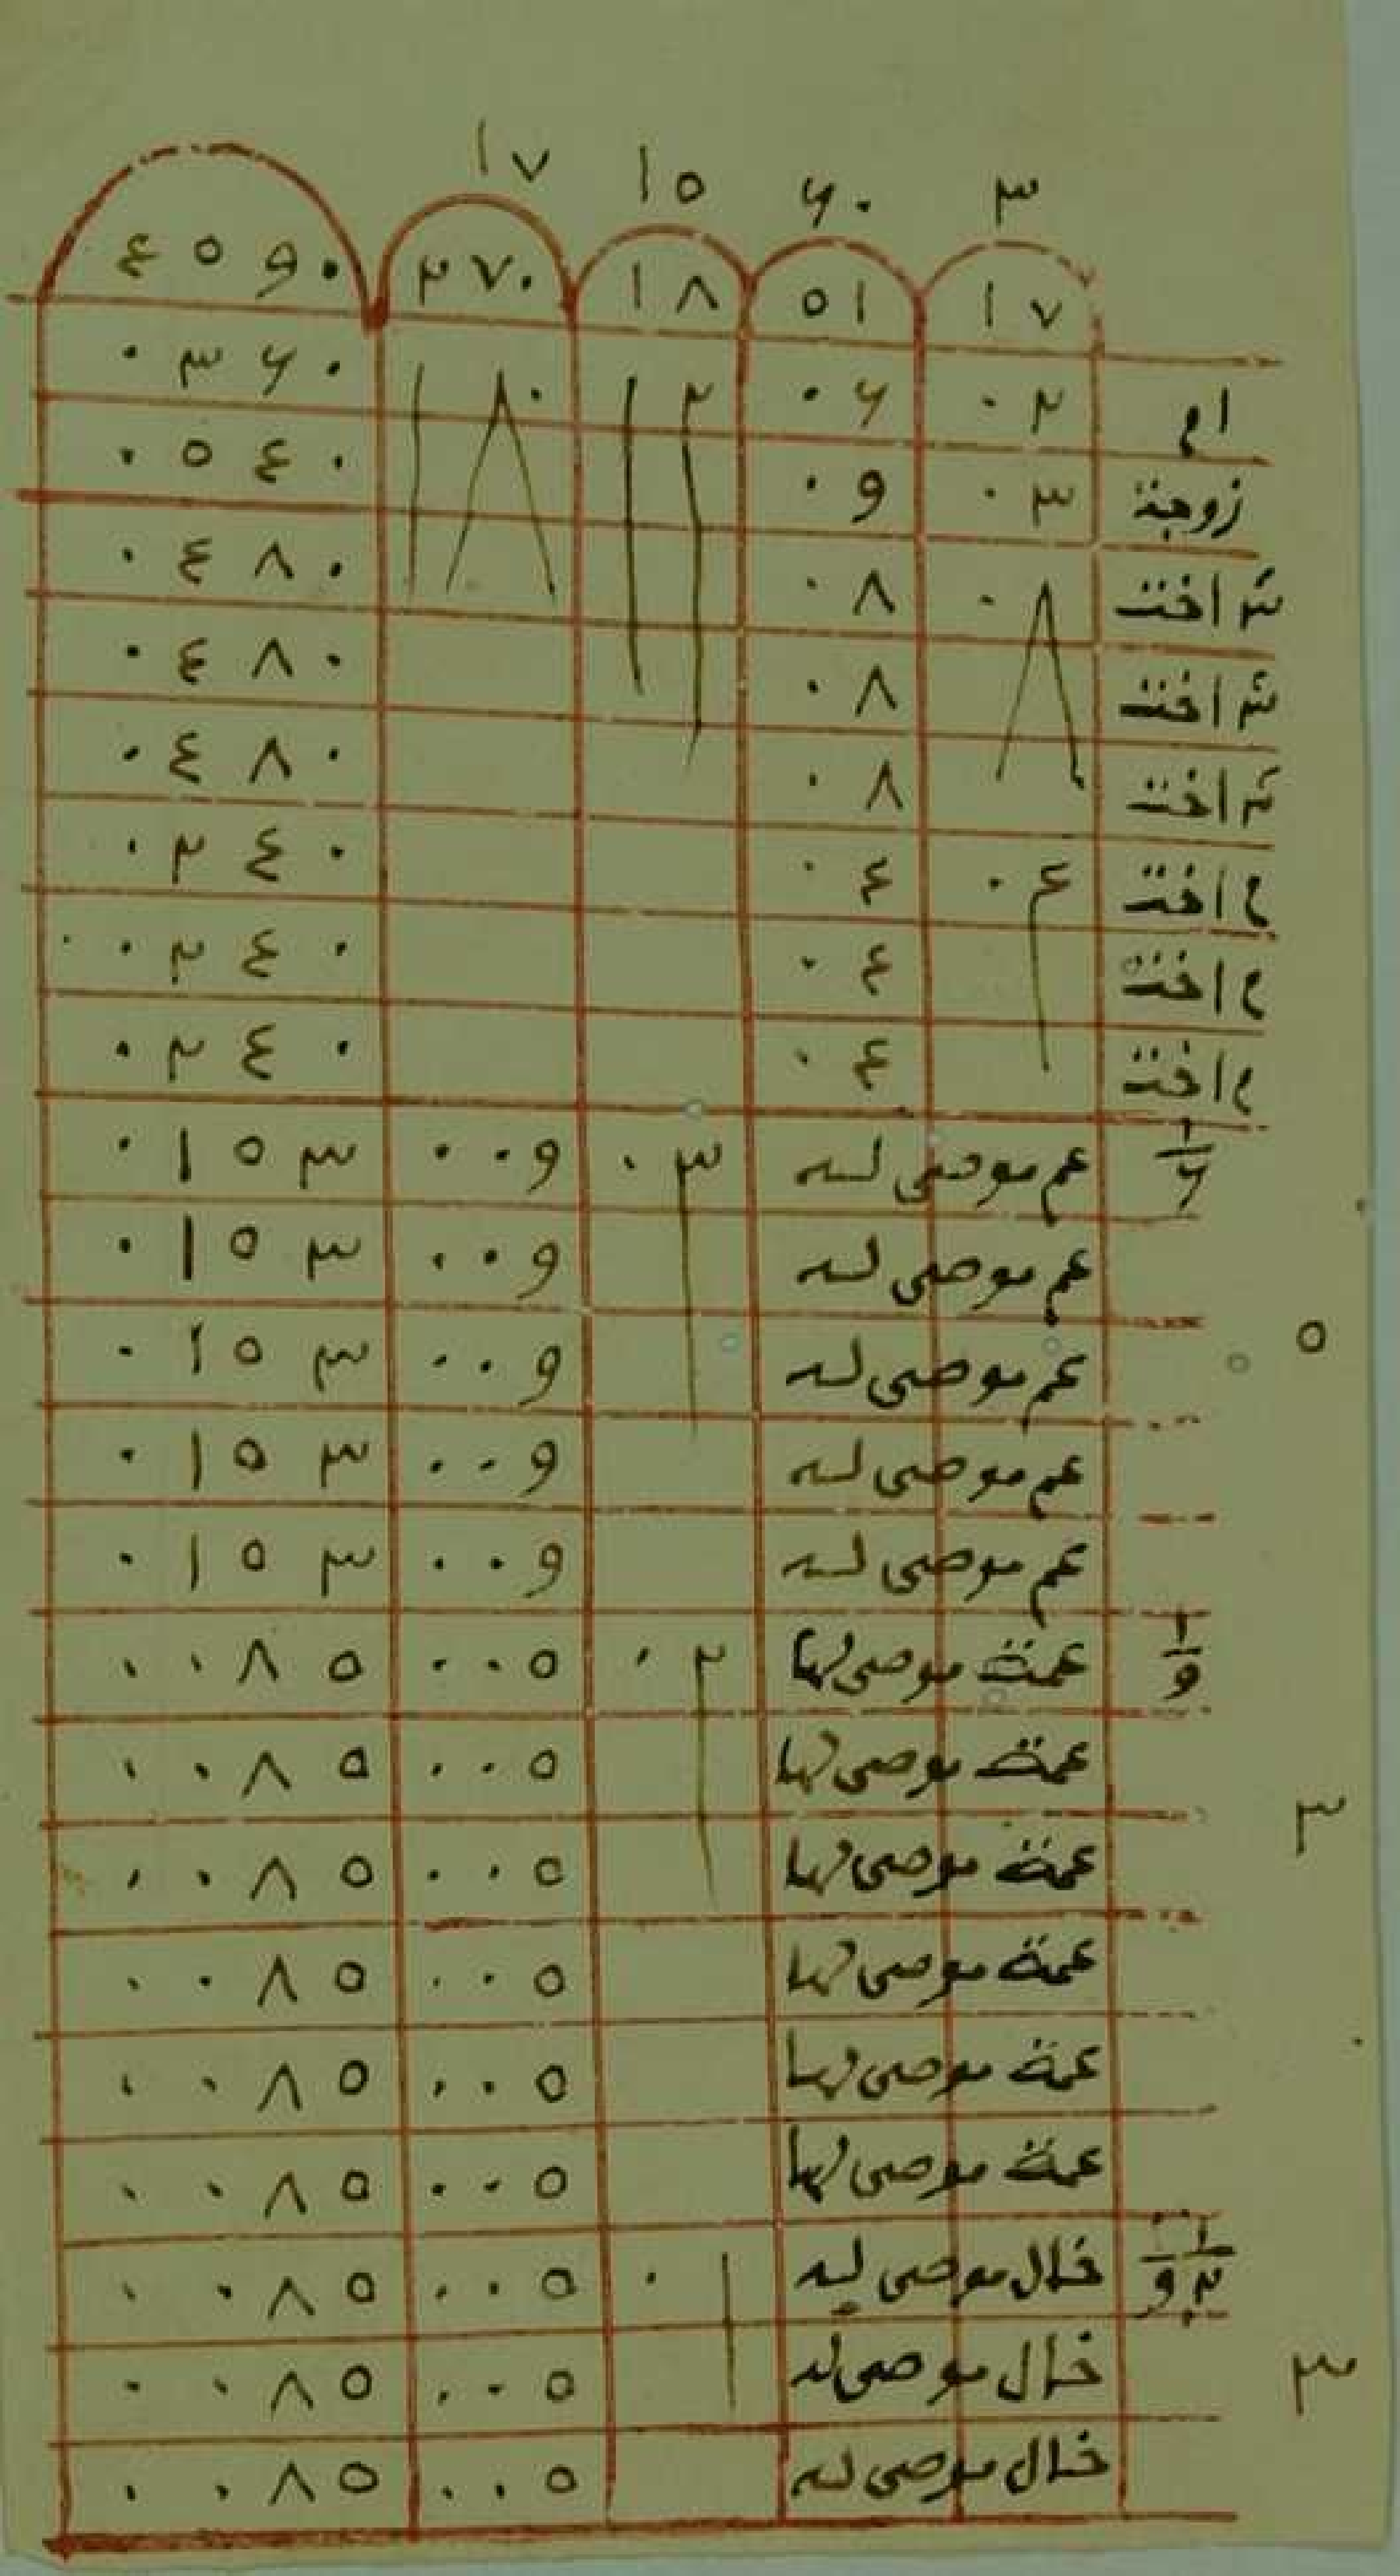 ٣ ٦٠ ١٥ ١٧
١٧ ٥١ ١٨ ٢٧٠ ٤٥٩٠
ام ٠٢ ٠٦ ١٢ ١٨٠ ٠٣٦٠
زوجة ٠٣ ٠٩ ٠٥٤٠
ش اخت ٠٨ ٠٨ ٠٤٨٠
ش اخت ٠٨ ٠٤٨٠
ش اخت ٠٨ ٠٤٨٠
م اخت ٠٤ ٠٤ ٠٢٤٠
م اخت ٠٤ ٠٢٤٠
م اخت ٠٤ ٠٢٤٠
١/٦ عم موصى له ٠٣ ٠٠٩ ٠١٥٣
عم موصى له ٠٠٩ ٠١٥٣
٥ عم موصى له ٠٠٩ ٠١٥٣
عم موصى له ٠٠٩ ٠١٥٣
عم موصى له ٠٠٩ ٠١٥٣
١/٩ عمة موصى لها ٠٢ ٠٠٥ ٠٠٨٥
عمة موصى لها ٠٠٥ ٠٠٨٥
٣ عمة موصى لها ٠٠٥ ٠٠٨٥
عمة موصى لها ٠٠٥ ٠٠٨٥
عمة موصى لها ٠٠٥ ٠٠٨٥
عمة موصى لها ٠٠٥ ٠٠٨٥
١/٢ ١/٩ خال موصى له ٠١ ٠٠٥ ٠٠٨٥
٣ خال موصى له ٠٠٥ ٠٠٨٥
خال موصى له ٠٠٥ ٠٠٨٥